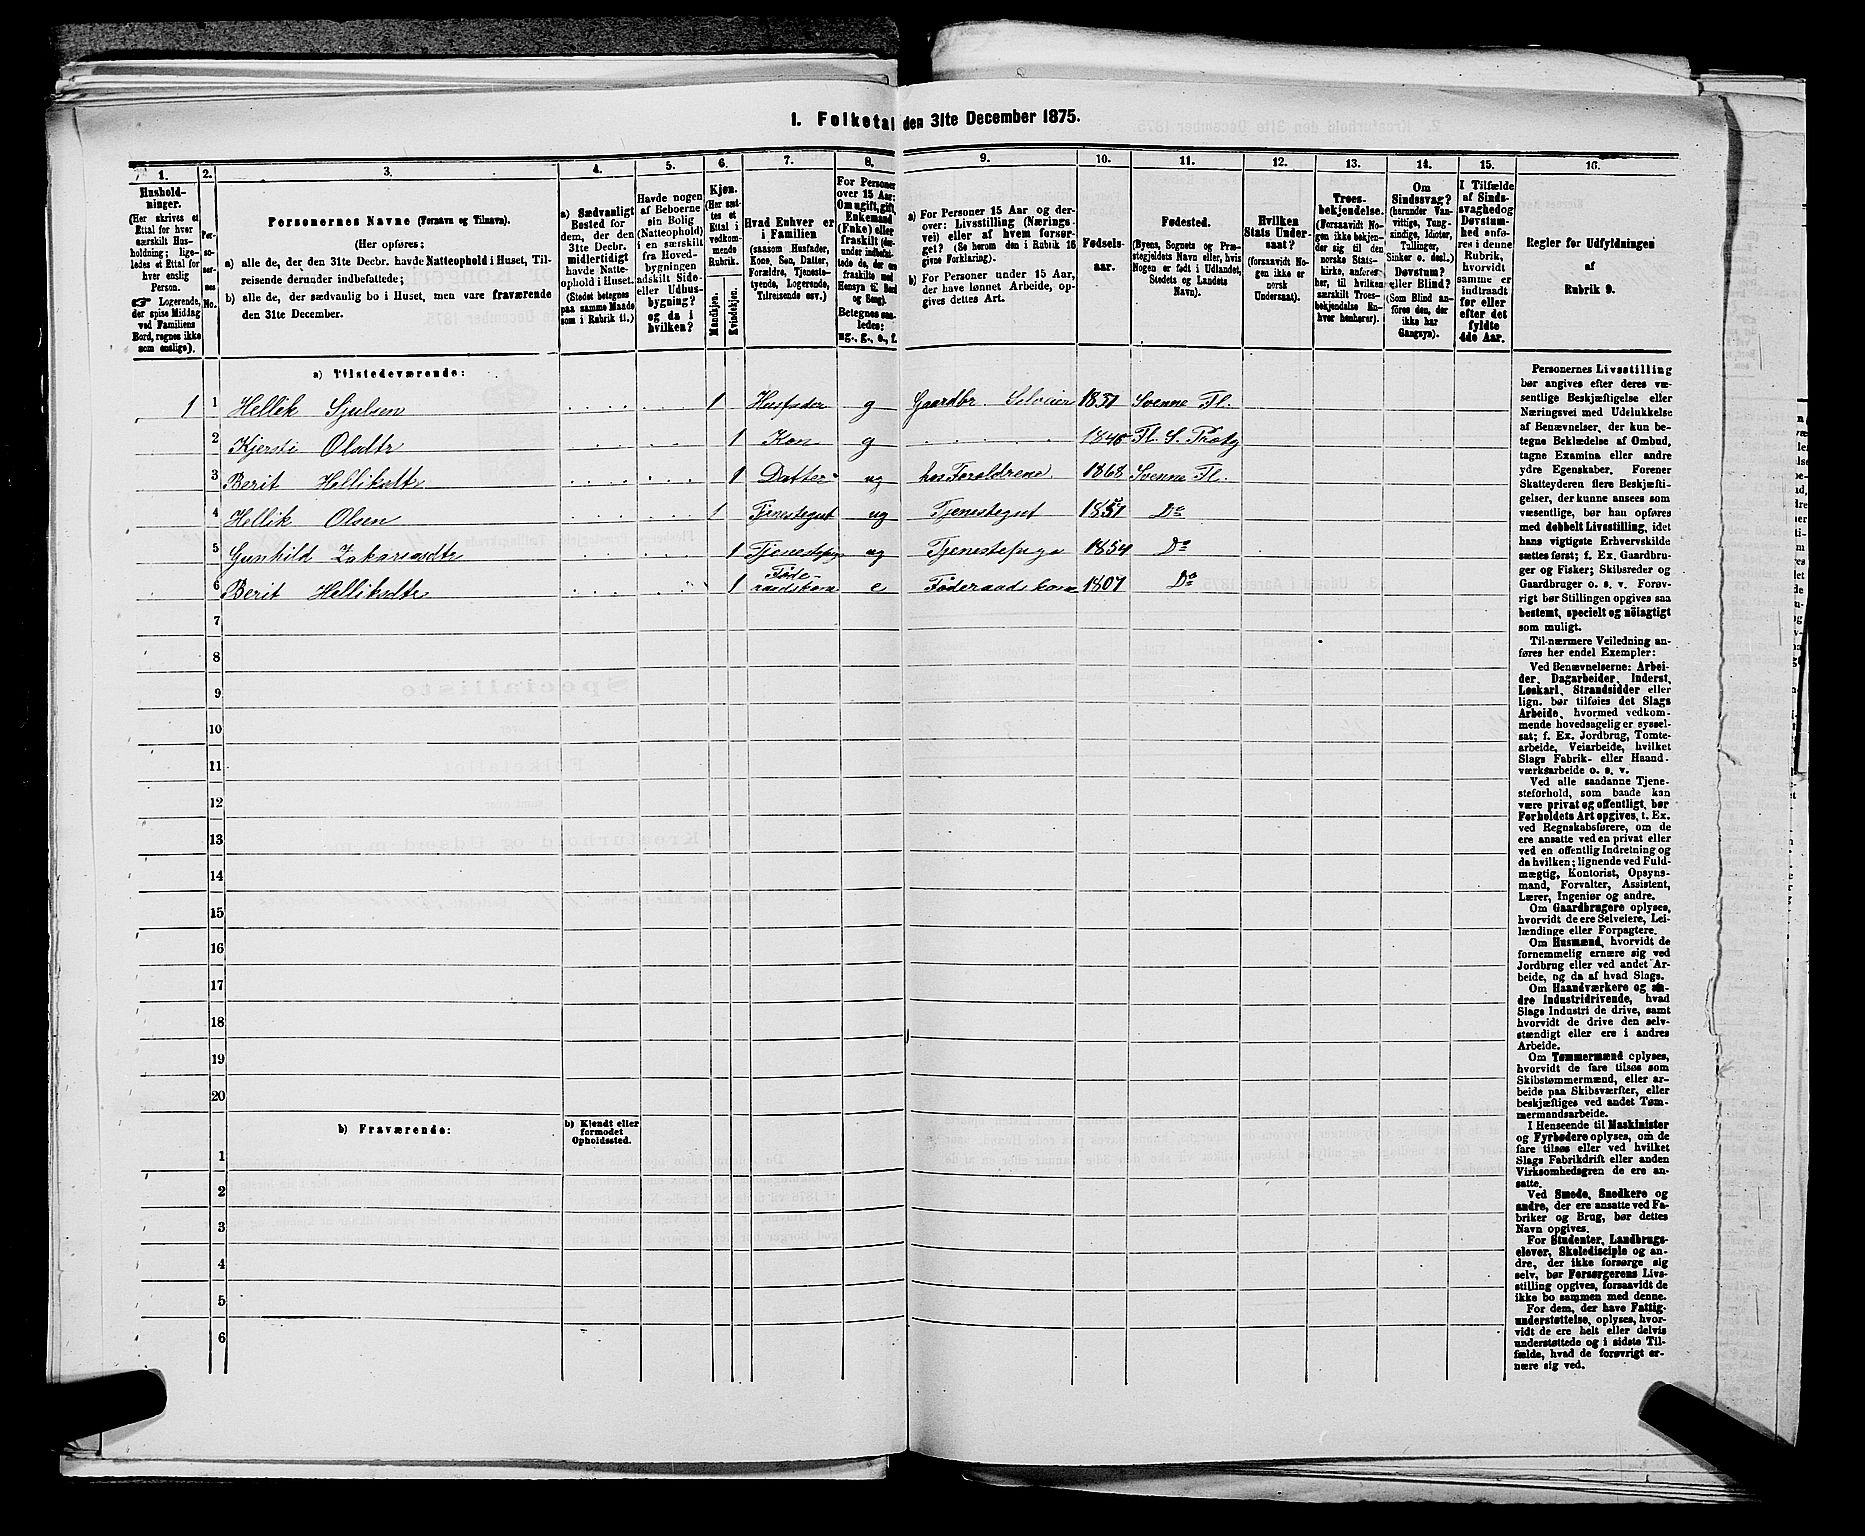 1. Folketal den 31te December 1875.
1. 2. 3. 4. 5. 6. 7. 8. 9. 10. 11. 12. 13. 14. 15. 16.
Hushold-
ninger.
(Her skrives et
Ettal for hver
særskilt Hus-
holdning; lige-
ledes et Ettal for
hver enslig
Person.
☞ Logerende,
der spise Middag
ved Familiens
Bord, regnes ikke
som enslige).
Per-
so-
ner-
nes
No.
Personernes Navne (Fornavn og Tilnavn).
(Her opføres:
a) alle de, der den 31te Decbr. havde Natteophold i Huset, Til-
reisende derunder indbefattede;
b) alle de, der sædvanlig bo i Huset, men vare fraværende
den 31te December.
a) Sædvanligt
Bosted for
dem, der den
31te Decbr.
midlertidigt
havde Natte-
ophold i Huset.
(Stedet betegnes
paa samme Maade
som i Rubrik 11.)
Havde nogen
af Beboerne
sin Bolig
(Natteophold)
i en særskilt
fra Hoved-
bygningen
adskilt Side
eller Udhus-
bygning?
og da i
hvilken?
Kjøn.
(Her sæt-
tes et
Ettal i
vedkom-
mende
Rubrik.
Mandkjøn.
Kvindekjøn.
Hvad Enhver er
i Familien
(saasom Husfader,
Kone, Søn, Datter,
Forældre, Tjeneste-
tyende, Logerende,
Tilreisende osv.)
For Personer
over 15 Aar:
Om ugift, gift,
Enkemand
(Enke) eller
fraskilt
Betegnes saa-
ledes:
ug., g., e., f.
a) For Personer 15 Aar og der-
over: Livsstilling (Nærings-
vei) eller af hvem forsør-
get? (Se herom den i Rubrik 16
givne Forklaring).
b) For Personer under 15 Aar,
der have lønnet Arbeide, op-
gives dettes Art.
Fødsels-
aar.
Fødested.
(Byens, Sognets og Præ-
stegjeldets Navn eller, hvis
Nogen er født i Udlandet,
Stedets og Landets
Navn).
Hvilken
Stats Under-
saat?
(forsaavidt No-
gen ikke er
norsk
Undersaat).
Troes-
bekjendelse.
(Forsaavidt No-
gen ikke bekjen-
der sig til den
norske Stats-
kirke, anføres
her, til hvilken
særskilt Troes-
bekjendelse En-
hver henhører).
Om
Sindssvag?
(herunder Van-
vittige, Tung-
sindige, Idioter,
Tullinger,
Sinker o. desl.)
Døvstum?
eller Blind?
(Som Blind an-
føres den, der
ikke har
Gangsyn).
I Tilfælde
af Sinds-
svaghed og
Døvstum-
hed anfø-
res i denne
Rubrik,
hvorvidt
samme er
indtraadt
før eller
efter det
fyldte
4de Aar.
Regler for Udfyldningen
af
Rubrik 9.
a) Tilstedeværende:
1 1 Hellik Sjulsen 1 Husfader g Gaardbr. Selveier 1837 Svenne Fl.
2 Kjersti Olsdtr 1 Kon g 1840 Fl. S. Præstg
3 Berit Helliksdtr 1 Datter ug hos Forældrene 1868 Svenne Fl.
4 Hellik Olsen 1 Tjenestegut ug Tjenestegut 1851 Do
5 Gunhild Zakariasdtr 1 Tjenestepige ug Tjenestepige 1854 Do
6 Berit Helliksdtr 1 Føde-
raadskone e Føderaadskone 1807 Do
7
8
9
10
11
12
13
14
15
16
17
18
19
20
b) Fraværende:
b) Kjendt eller
formodet
Opholdssted.
1
2
3
4
5
6
Personernes Livsstilling
bør angives efter deres væ-
sentlige Beskjæftigelse eller
Næringsvei med Udelukkelse
af Benævnelser, der kun be-
tegne Beklædelse af Ombud,
tagne Examina eller andre
ydre Egenskaber. Forener
Skatteyderen flere Beskjæfti-
gelser, der kunne ansees som
væsentlige, bør han opføres
med dobbelt Livsstilling, idet
hans vigtigste Erhvervskilde
sættes først; f. Ex. Gaardbru-
ger og Fisker; Skibsreder og
Gaardbruger o. s. v. Forøv-
rigt bør Stillingen opgives saa
bestemt, specielt og nöiagtigt
som muligt.
Til nærmere Veiledning an-
føres her endel Exempler:
Ved Benævnelserne: Arbei-
der, Dagarbeider, Inderst,
Løskarl, Strandsidder eller
lign. bør tilføies det Slags
Arbeide, hvormed vedkom-
mende hovedsagelig er syssel-
sat; f. Ex. Jordbrug, Tomte-
arbeide, Veiarbeide, hvilket
Slags Fabrik- eller Haand-
værksarbeide o. s. v.
Ved alle saadanne Tjene-
steforhold, som baade kan
være privat og offentligt, bør
Forholdets Art opgives, t. Ex.
ved Regnskabsførere, om de
ere ansatte ved en privat eller
ved en offentlig Indretning og
da hvilken; lignende ved Fuld-
mægtig, Kontorist, Opsyns-
mand, Forvalter, Assistent,
Lærer, Ingeniør og andre.
Om Gaardbrugere oplyses,
hvorvidt de ere Selveiere, Lei-
lændinge eller Forpagtere.
Om Husmænd, hvorvidt de
fornemmelig ernære sig ved
Jordbrug eller ved andet Ar-
beide, og da af hvad Slags.
Om Haandværkere og an-
dre Industridrivende, hvad
Slags Industri de drive, samt
hvorvidt de drive den selv-
stændigt eller ere i andres
Arbeide.
Om Tømmermænd oplyses,
hvorvidt de fare tilsøs som
Skibstømmermænd, eller ar-
beide paa Skibsværfter, eller
beskjæftiges ved andet Tøm-
mermandsarbeide.
I Henseende til Maskinister
og Fyrbødere oplyses, om de
fare tilsøs eller ved hvilket
Slags Fabrikdrift eller anden
Virksomhedsgren de ere an-
satte.
Ved Smede, Snedkere og
andre, der ere ansatte ved Fa-
briker og Brug, bør dettes
Navn opgives.
For Studenter, Landbrugs-
elever, Skoledisciple og an-
dre, der ikke forsørge sig
selv, bør Forsørgerens Livs-
stilling opgives, forsaavidt de
ikke bo sammen med denne.
For dem, der have Fattig-
understøttelse, oplyses, hvor-
vidt de ere helt eller delvis
understøttede og i sidste Til-
fælde, hvad de forøvrigt er-
nære sig ved.